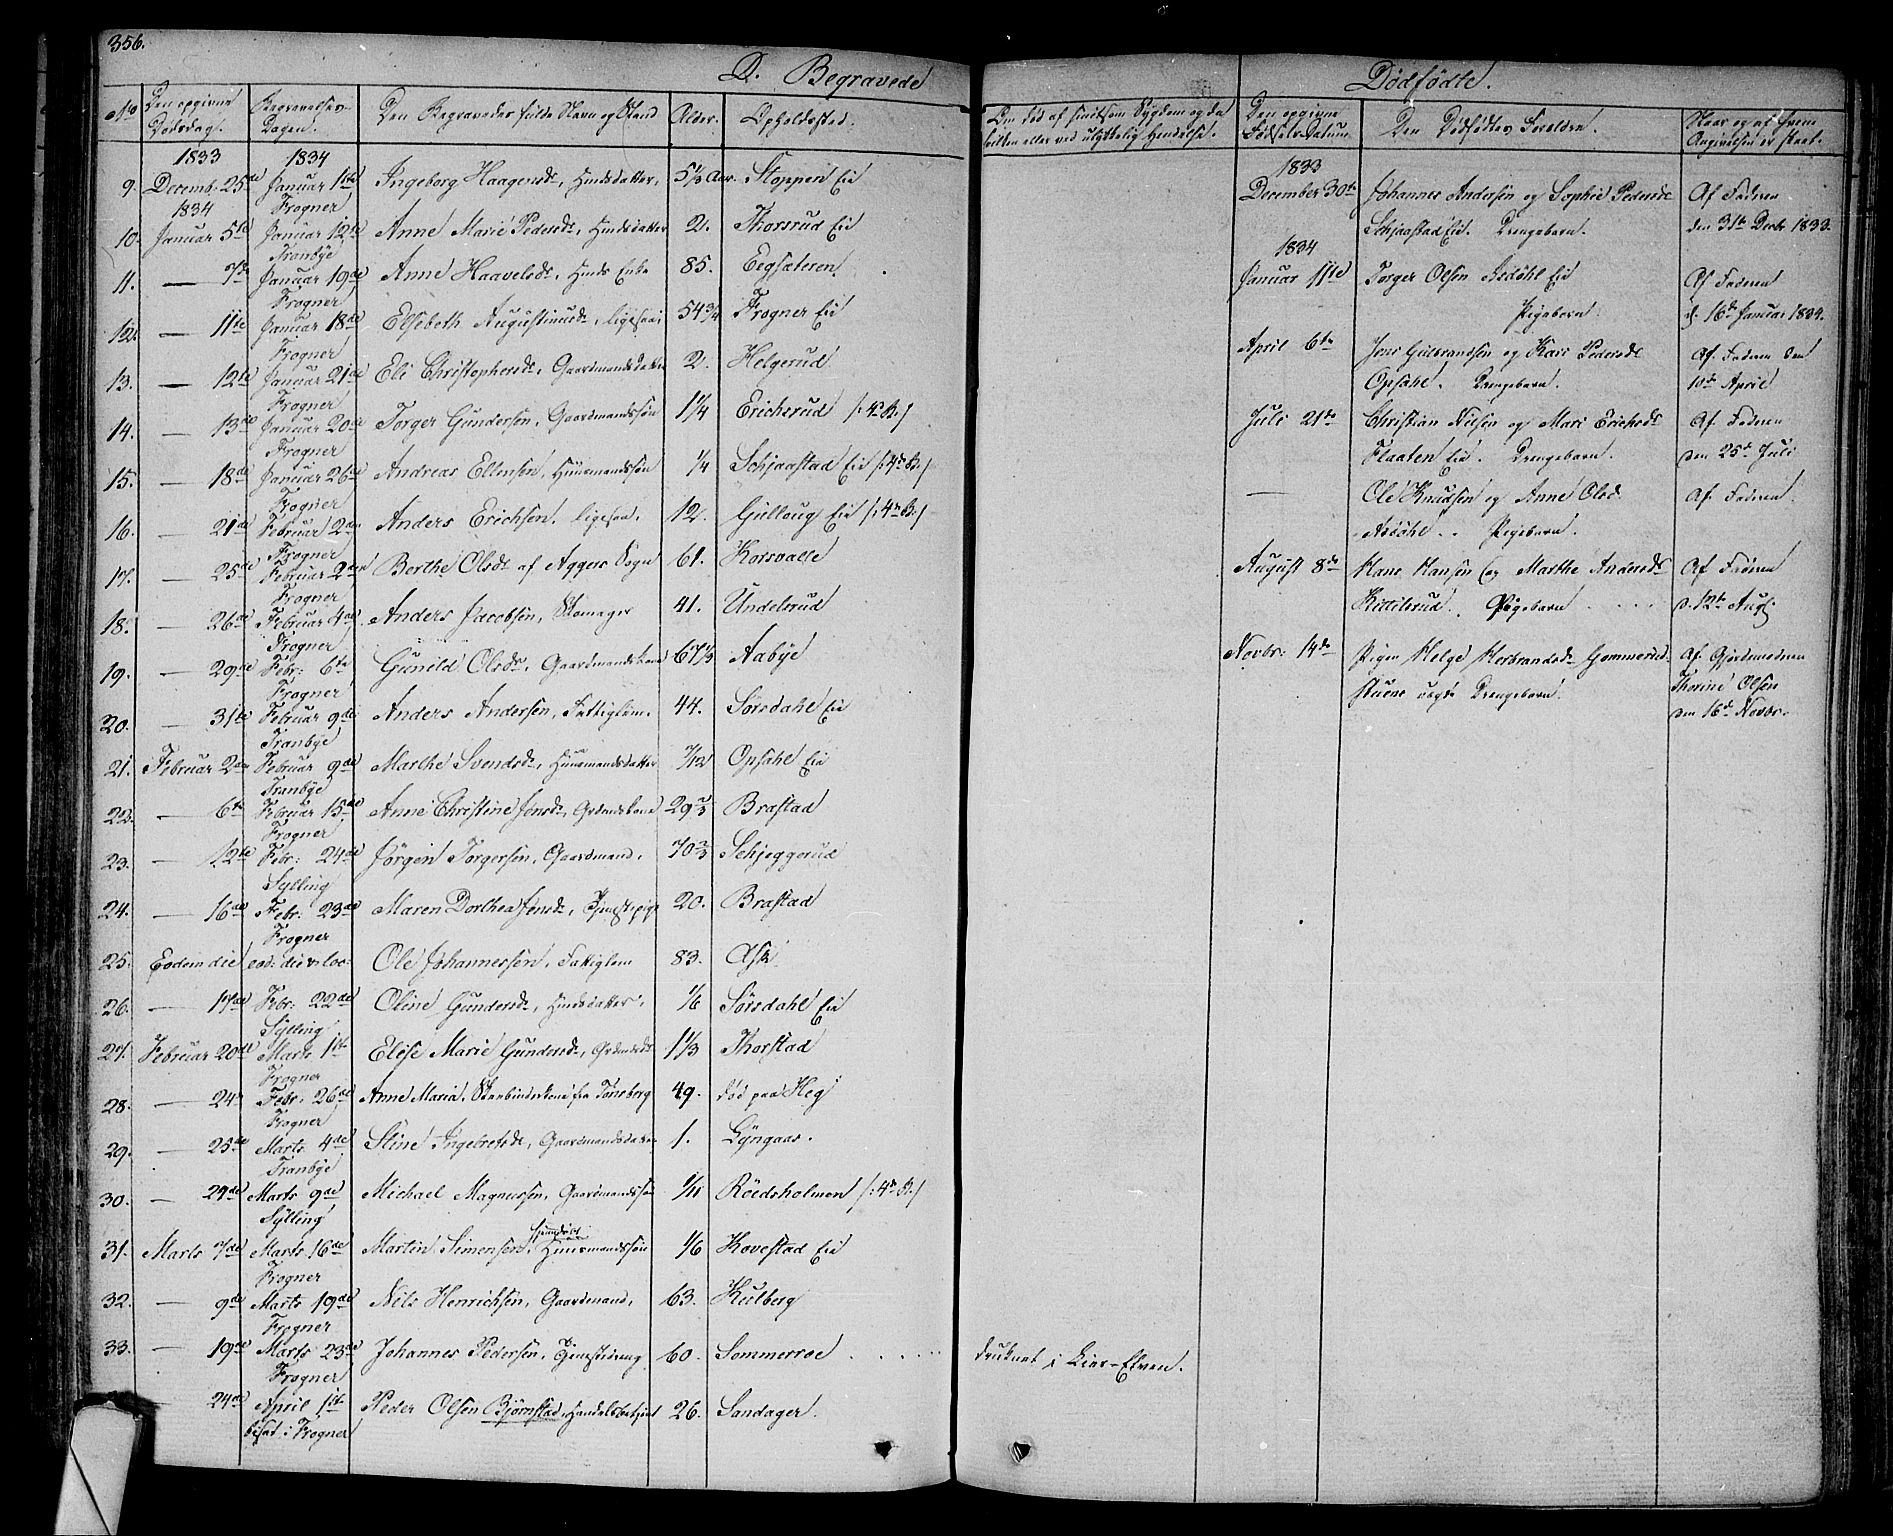 356.
D. Begravede
No Den opgivne Dødsdag. Begravelses-Dagen. Den Begravedes fulde Navn og Stand Alder. Opholdssted.
1833 1834
9. Decemb. 25de Januar 1ste Ingeborg Haagensdr, Huusdatter, 5 1/3 Aar. Stoppen Eie
1834 Frogner
10. Januar 5te Januar 12te Anne Marie Pedersdr, Huusdatter 2. Thorsrud Eie
Tranbye
11. — 7de Januar 19de Anne Haavelsdr, Huus Enke 85. Eegsæteren
Frogner
12. — 11te Januar 18de Elsebeth Augustinusdr, ligesaa 54 3/4 Frogner Eie
Frogner
13. — 12te Januar 21de Eli Christophersdr, Gaardmandsdatter 2. Helgerud
Frogner
14. — 13de Januar 20de Torger Gundersen, Gaardmandssøn 1 1/4 Ericksrud /:4de B:/
Frogner
15. — 18de Januar 26de Andreas Ellensen, Huusmandssøn 1/4 Schjaastad Eie /:4de B:/
Frogner
16. — 21de Februar 2den Anders Erichsen, ligesaa, 12. Gulloug Eie /:4de B:/
Frogner
17. — 25de Februar 2den Berthe Olsdr af Aggers Sogn 61. Korsvalle
Frogner
18. — 26de Februar 4de Anders Jacobsen, Skomager 41. Undelsrud
Frogner
19. — 29de Febr: 6te Gunild Olsdr, Gaardmandskone 67 1/3 Aabye
Frogner
20. — 31te Februar 9de Anders Andersen, Fattiglem. 44. Sørsdahl Eie
Tranbye
21. Februar 2den Februar 9de Marthe Svendsdr, Huusmandsdatter 7/12 Opsahl Eie
Tranbye
22. — 6te Februar 15de Anne Christine Jensdr, Grdmdskone 29 2/3 Brastad
Frogner
23. — 12te Febr: 24de Jørgen Torgersen, Gaardmand, 70 2/3 Schjeggerud
Sylling
24. — 16de Febr: 23de Maren Dorthea Jensdr, Tjenestpige 20. Brastad
Frogner
25. Eodem die eod: die & loc: Ole Johannessen, Fattiglem 83. Ask
26. — 17de Febr: 22de Oline Gundersdr, Huusdatter, 1/6 Sørsdahl Eie
Sylling
27. Februar 20de Marts 1ste Elise Marie Gundersdr, Grdmdsdr 1 1/3 Thorstad
Frogner
28. — 24de Febr: 26de Anne Maria, Skarbinderkone fra Tønsberg 49. død paa Heg
Frogner
29. — 25de Marts 4de Stine Ingebretsdr, Gaardmandsdatter 1. Lyngaas.
Tranbye
30. — 29de Marts 9de Michael Magnussen, Gaardmandssøn 1/11 Röedsholmen /:4de B:/
Sylling
31. Marts 7de Marts 16de Martin Simensen, Huusmandssøn 1/6 Kovestad Eie
Frogner
32. — 9de Marts 19de Nils Henrichsen, Gaardmand, 63. Kulberg
Frogner
33. — 19de Marts 23de Johannes Pedersen, Tjenestedreng 60. Sommeroe . . . . . druknet i Lier-Elven.
Frogner
24de April 1ste Peder Olsen Bjørnstad, Handelsbetjent 26. Sandager.
bisat i Frogner
Dødfødte.
Om død af smitsom Sygdom og da hvilken eller ved ulykkelig Hendelse. Den opgivne Fødsels-Datum Den Dødfødtes Forældre. Naar og af hvem Angivelsen er skeet.
1833
December 30te Johannes Andersen og Sophie Pedersdr Af Faderen
Schjaastad Eie. Drengebarn. den 31te Decbr 1833.
1834
Januar 11te Torger Olsen Asdöhl Eie Af Faderen
Pigebarn d. 16de Januar 1834.
April 6te Jens Gulbrandsen og Kari Pedersdr Af Faderen den
Opsahl. Drengebarn. 10de April
Juli 21de Christian Nielsen og Mari Erichsdr Af Faderen
Flaaten Eie. Drengebarn. den 25de Juli
— Ole Knudsen og Anne Olsd. Af Faderen
Asdöhl . . Pigebarn.
August 8de Hans Hansen og Marthe Andersdr Af Faderen
Kittilsrud . . Pigebarn . . . . d. 12te Aug:
Novbr: 14de Pigen Helge Herbrandsdr Gommerud- Af Gjordemoderen
stuens uægte Drengebarn. Thorine Olsen
den 16de Novbr.